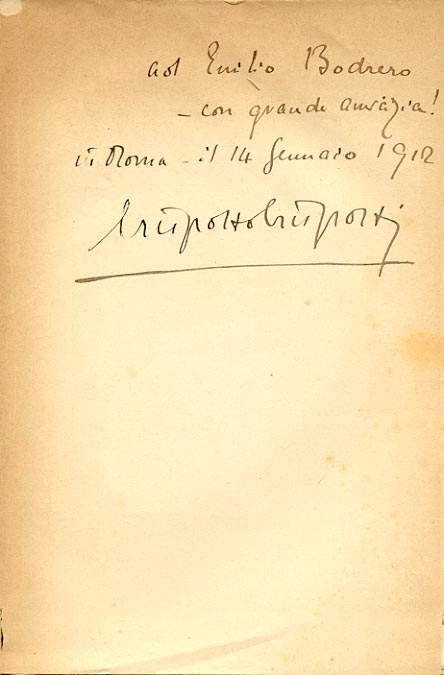 ad Emilio Bodrero
- con grande amicizia!
in Roma - il 14 Gennaio 1912
Crispolto Crispolti